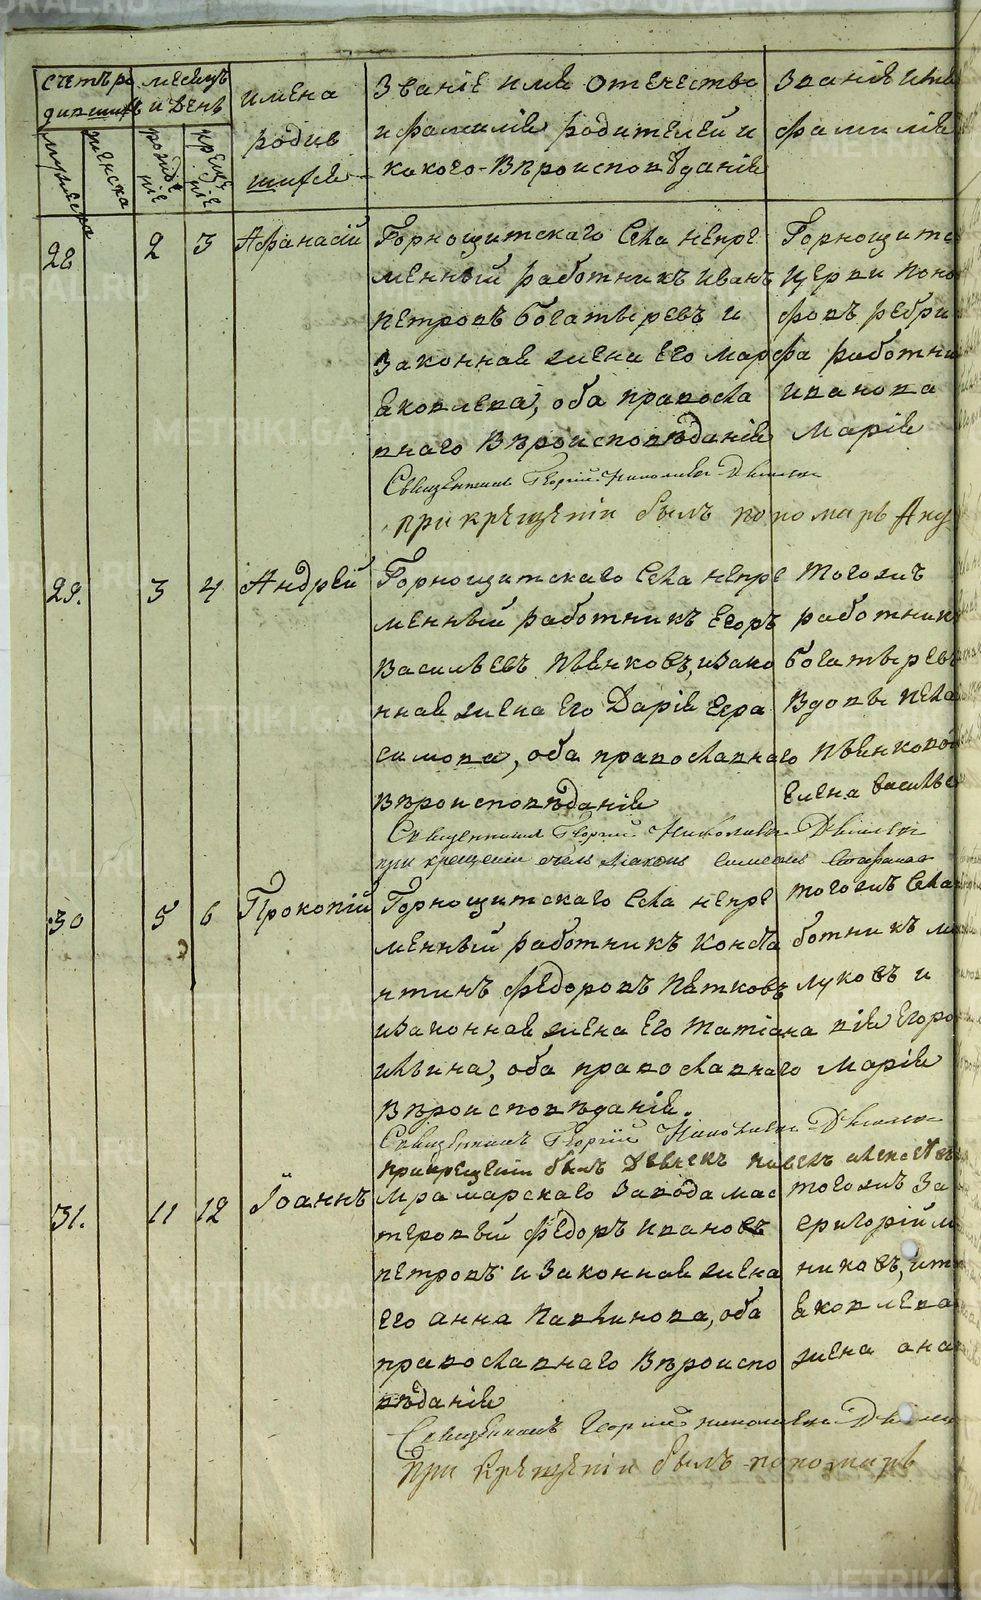 счетъ ро
дившихъ
мужеска
женска
месяцъ
и день
рожде
ніе
креще
ніе
имена
родив
шихся
Званіе имя отечество
и фамилія родителей и
какого вѣроисповѣданія
Званіе имя
фамилія
28 2 3 Афанасій
Горнощитскаго села непре
менный работникъ Иванъ
Петровъ Богатыревъ и
законная жена его Марфа
Яковлева, оба правосла
внаго вѣроисповѣданія
Горнощитс
церкви поно
работни
Иванова
Марія
Священникъ Георгій Николаевъ
При крещеніи былъ пономарь
29. 3 4 Андрей
Горнощитскаго села непре
менный работникъ Егоръ
Васильевъ Пьянковъ, и зако
нная жена его Дарія Гера
симова, оба православнаго
вѣроисповѣданія
тогожъ
работник
Богатырев
вдовы Пела
Пьянковой
Елена Василье
Священникъ Георгій Николаевъ
при крещеніи
30 5 6 Прокопій
Горнощитскаго села непре
менный работникъ Конста
нтинъ Федоровъ Пятковъ
и законная жена его Татіана
Ильина, оба православнаго
вѣроисповѣданія.
тогожъ села
ботникъ
луковъ и
вія Егоро
Марія
Священникъ Георгій Николаевъ
при крещеніи былъ Дьячекъ Павелъ Алексѣевъ
31. 11 12 Іоаннъ
Мраморскаго завода мас
теровый Федоръ Ивановъ
Петровъ и законная жена
его Анна Павлинова, оба
православнаго вѣроиспо
вѣданія
тогожъ за
Григорій
никовъ, и
Яковлева
жена
Священникъ Георгій Николаевъ
При крещеніи былъ пономарь
METRIKI.GASO-URAL.RU